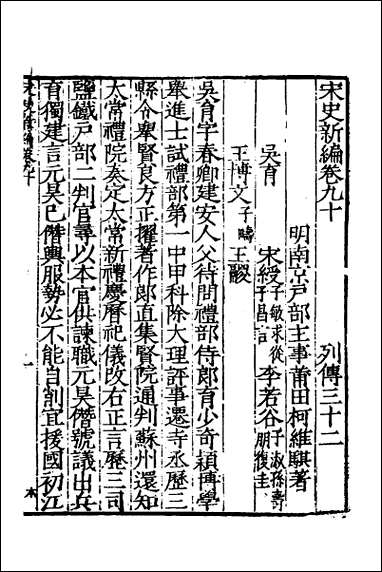 宋史新編卷九十 列傳三十二
明南京戶部主事莆田柯維騏著
吳育 宋綬子敏求從子昌言 李若谷子淑孫壽朋復圭
王博文子疇 王鬷
吳育字春卿建安人父待問禮部侍郎育少奇穎博學
舉進士試禮部第一中甲科除大理評事遷寺丞歷三
縣令舉賢良方正擢著作郎直集賢院通判蘇州還知
太常禮院奏定太常新禮慶曆祀儀改右正言歷三司
鹽鐵戶部二判官尋以本官供諫職元昊僭號議出兵
育獨建言元昊已僭輿服勢必不能自削宜援國初江
宋史新編卷九十 一